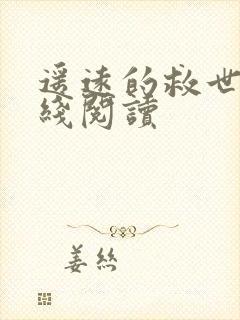 遥远的救世
綫閱讀
姜絲